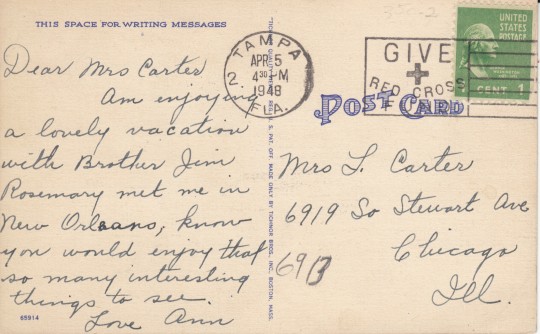 THIS SPACE FOR WRITING MESSAGES
Dear Mrs Carter
Am enjoying
a lovely vacation
with Brother Jim
Rosemary met me in
New Orleans, know
you would enjoy that
so many interesting
things to see.
Love Ann
69914
TAMPA
2
APR 5
4 30 PM
1948
FLA.
GIVE
+
RED CROSS
FUND
UNITED
STATES
POSTAGE
WASHINGTON
CENT 1
350-2
POST CARD
Mrs L. Carter
6919 So Stewart Ave
Chicago
6913
Ill.
REG. U. S. PAT. OFF. MADE ONLY BY TICHNOR BROS., INC., BOSTON, MASS.